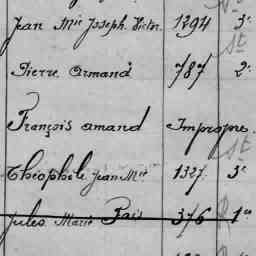 Jean Mie Joseph Victor 1294 3e
St
Pierre Armand 787 2e
François Amand Impropre
St
Théophile Jean Mie 1327 3e
Jules Marie Pais 376 1er